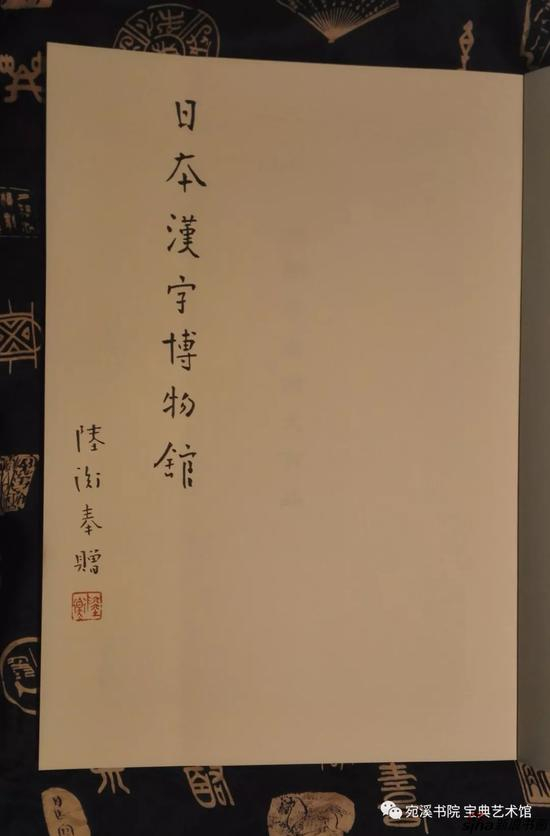 日本漢字博物館
陸衡奉贈
宛溪书院 宝典艺术馆
sina